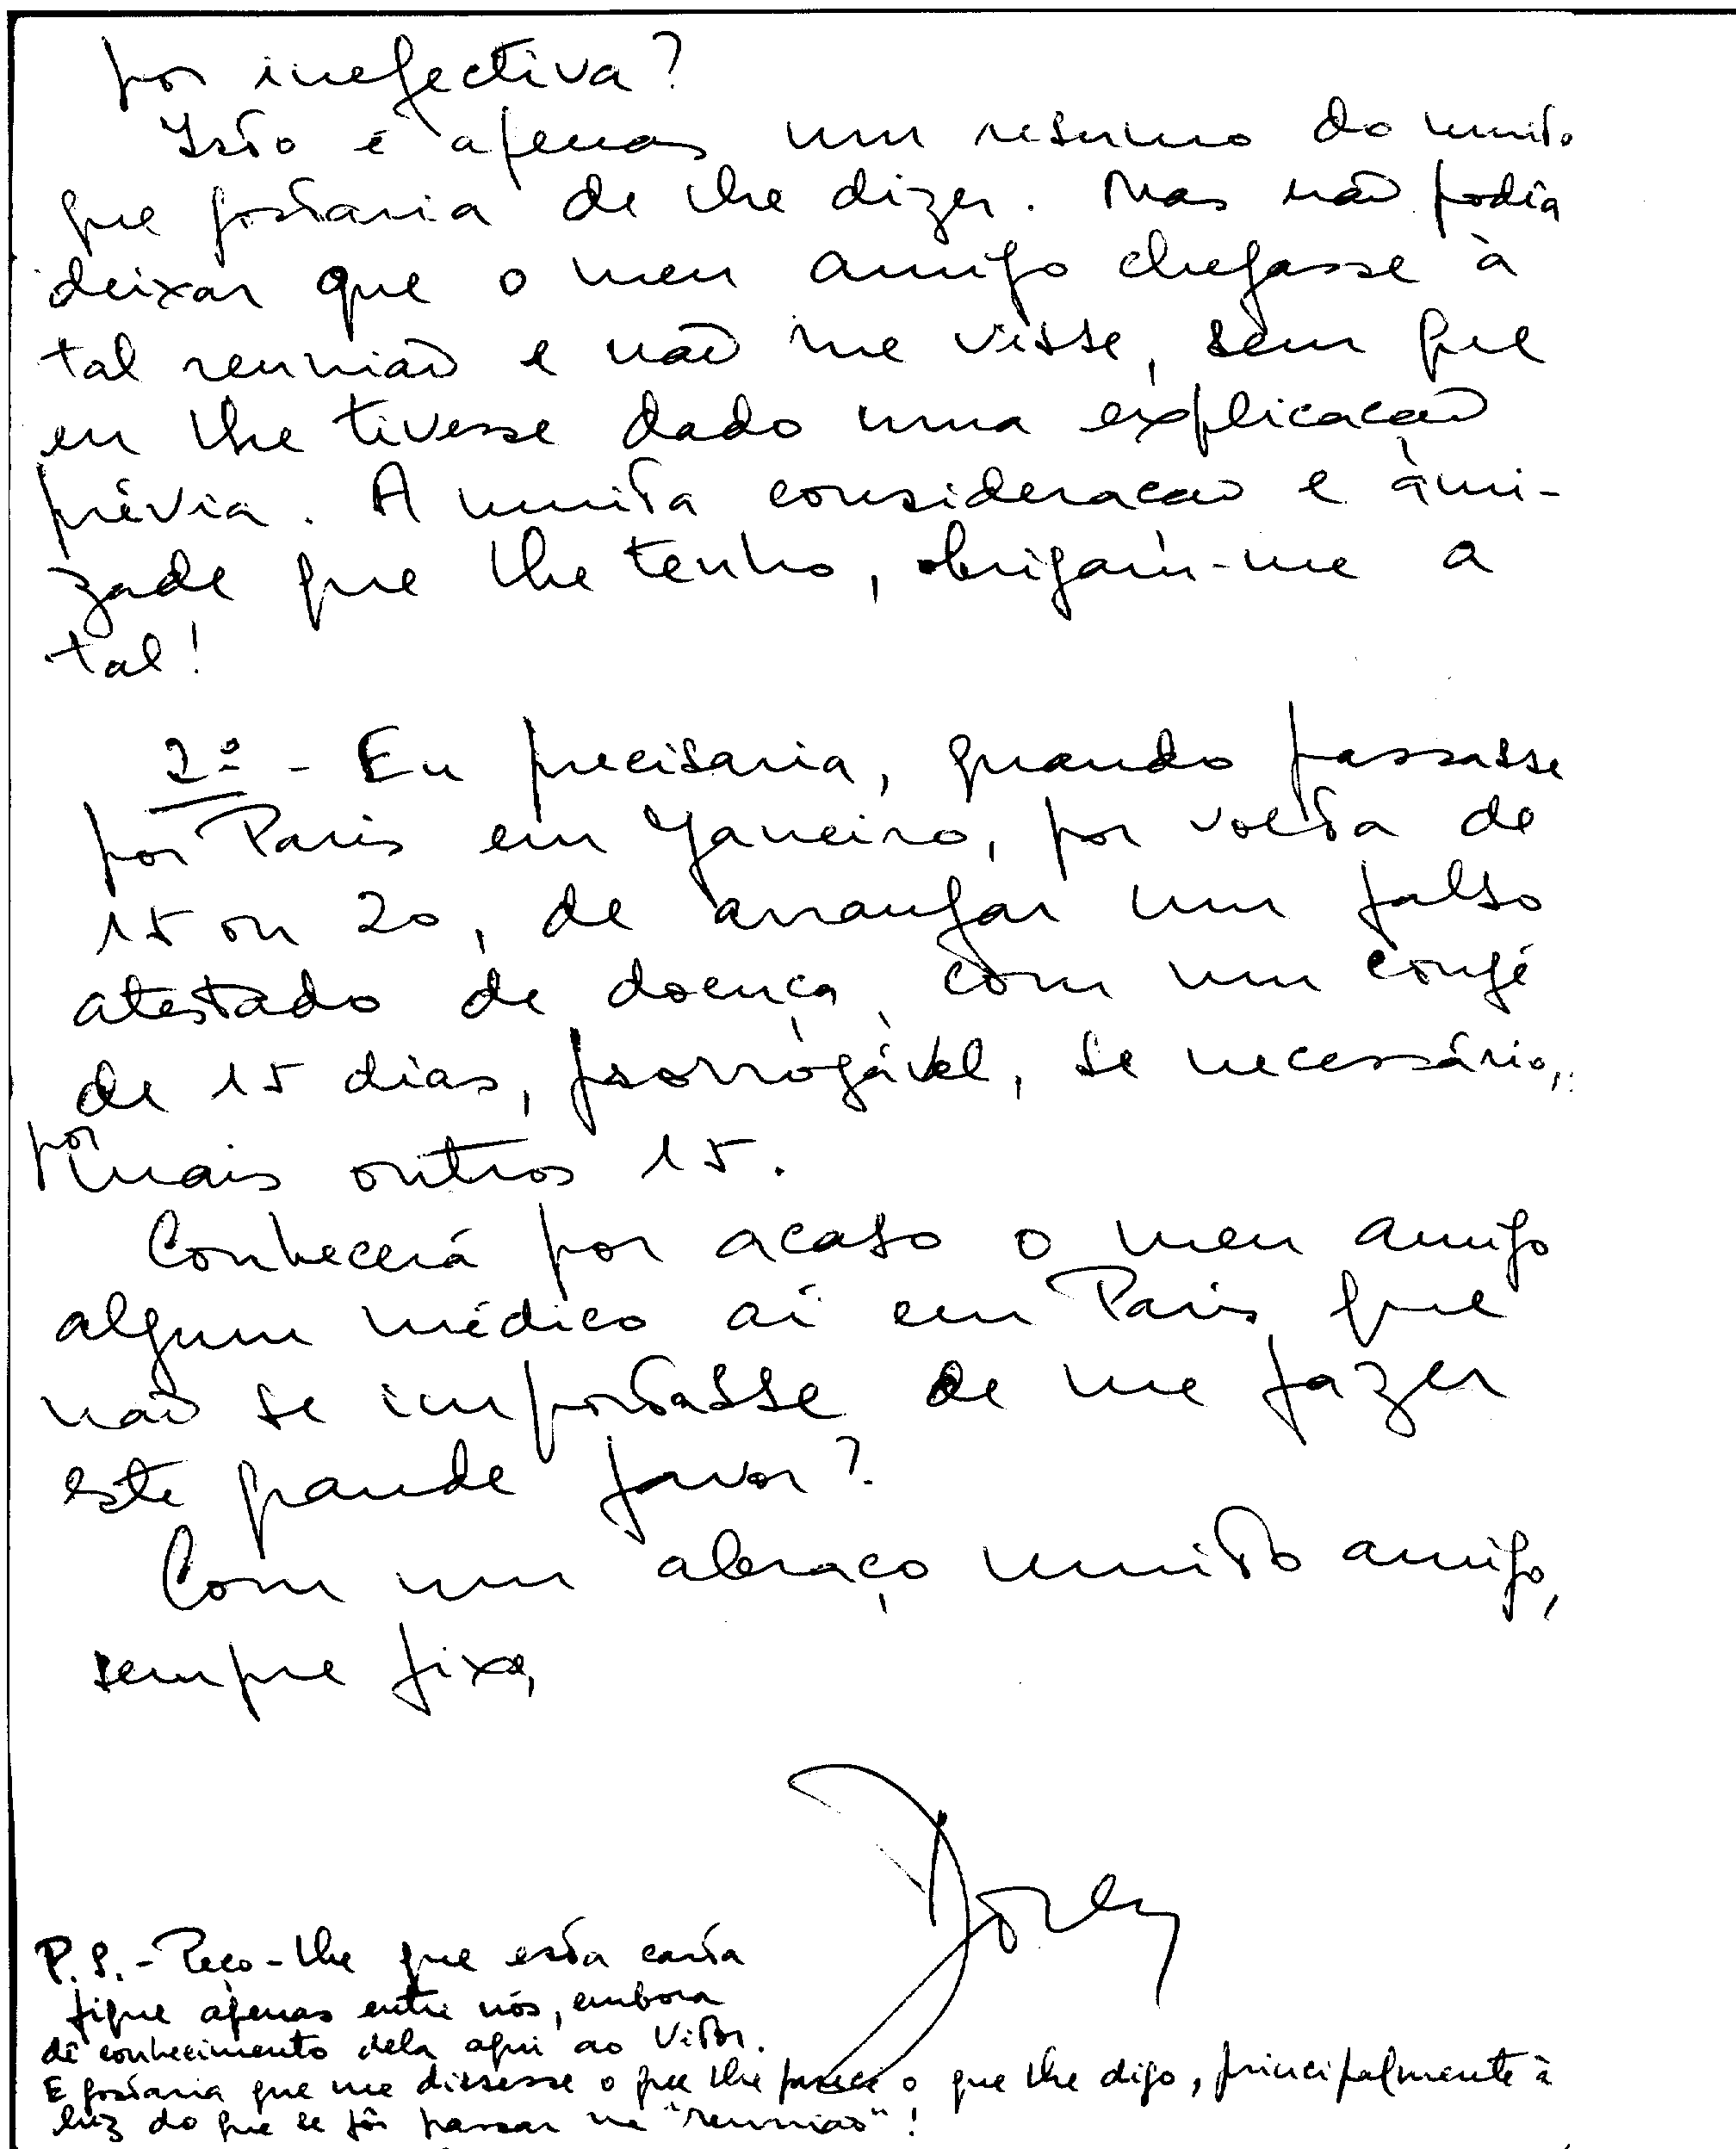 por inefectiva?
Isto é apenas um resumo do muito
que gostaria de lhe dizer. Mas não podia
deixar que o meu amigo chegasse à
tal reunião e não me visse, sem que
eu lhe tivesse dado uma explicação
prévia. A muita consideração e ami-
zade que lhe tenho, obrigam-me a
tal!
2º - Eu precisaria, quando passasse
por Paris em Janeiro, por volta de
15 ou 20, de arranjar um falso
atestado de doença, com um congé
de 15 dias, prorrogável, se necessário,
por mais outros 15.
Conhecerá por acaso o meu amigo
algum médico aí em Paris, que
não se importasse de me fazer
este grande favor?
Com um abraço muito amigo,
sempre fixe,
P.S. - Peço-lhe que esta carta
fique apenas entre nós, embora
dê conhecimento dela aqui ao Vitor.
E gostaria que me dissesse o que lhe parece o que lhe digo, principalmente à
luz do que se for passar na "reunião"!